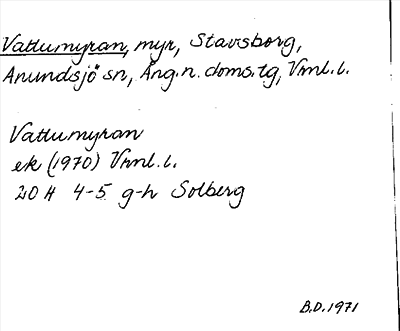 Vattumyran, myr, Stavsborg,
Anundsjö sn, Ång. n. doms. tg, Vrml. l.
Vattumyran
ek (1970) Vrml. l.
20 H 4-5 g-h Solberg
B.D. 1971